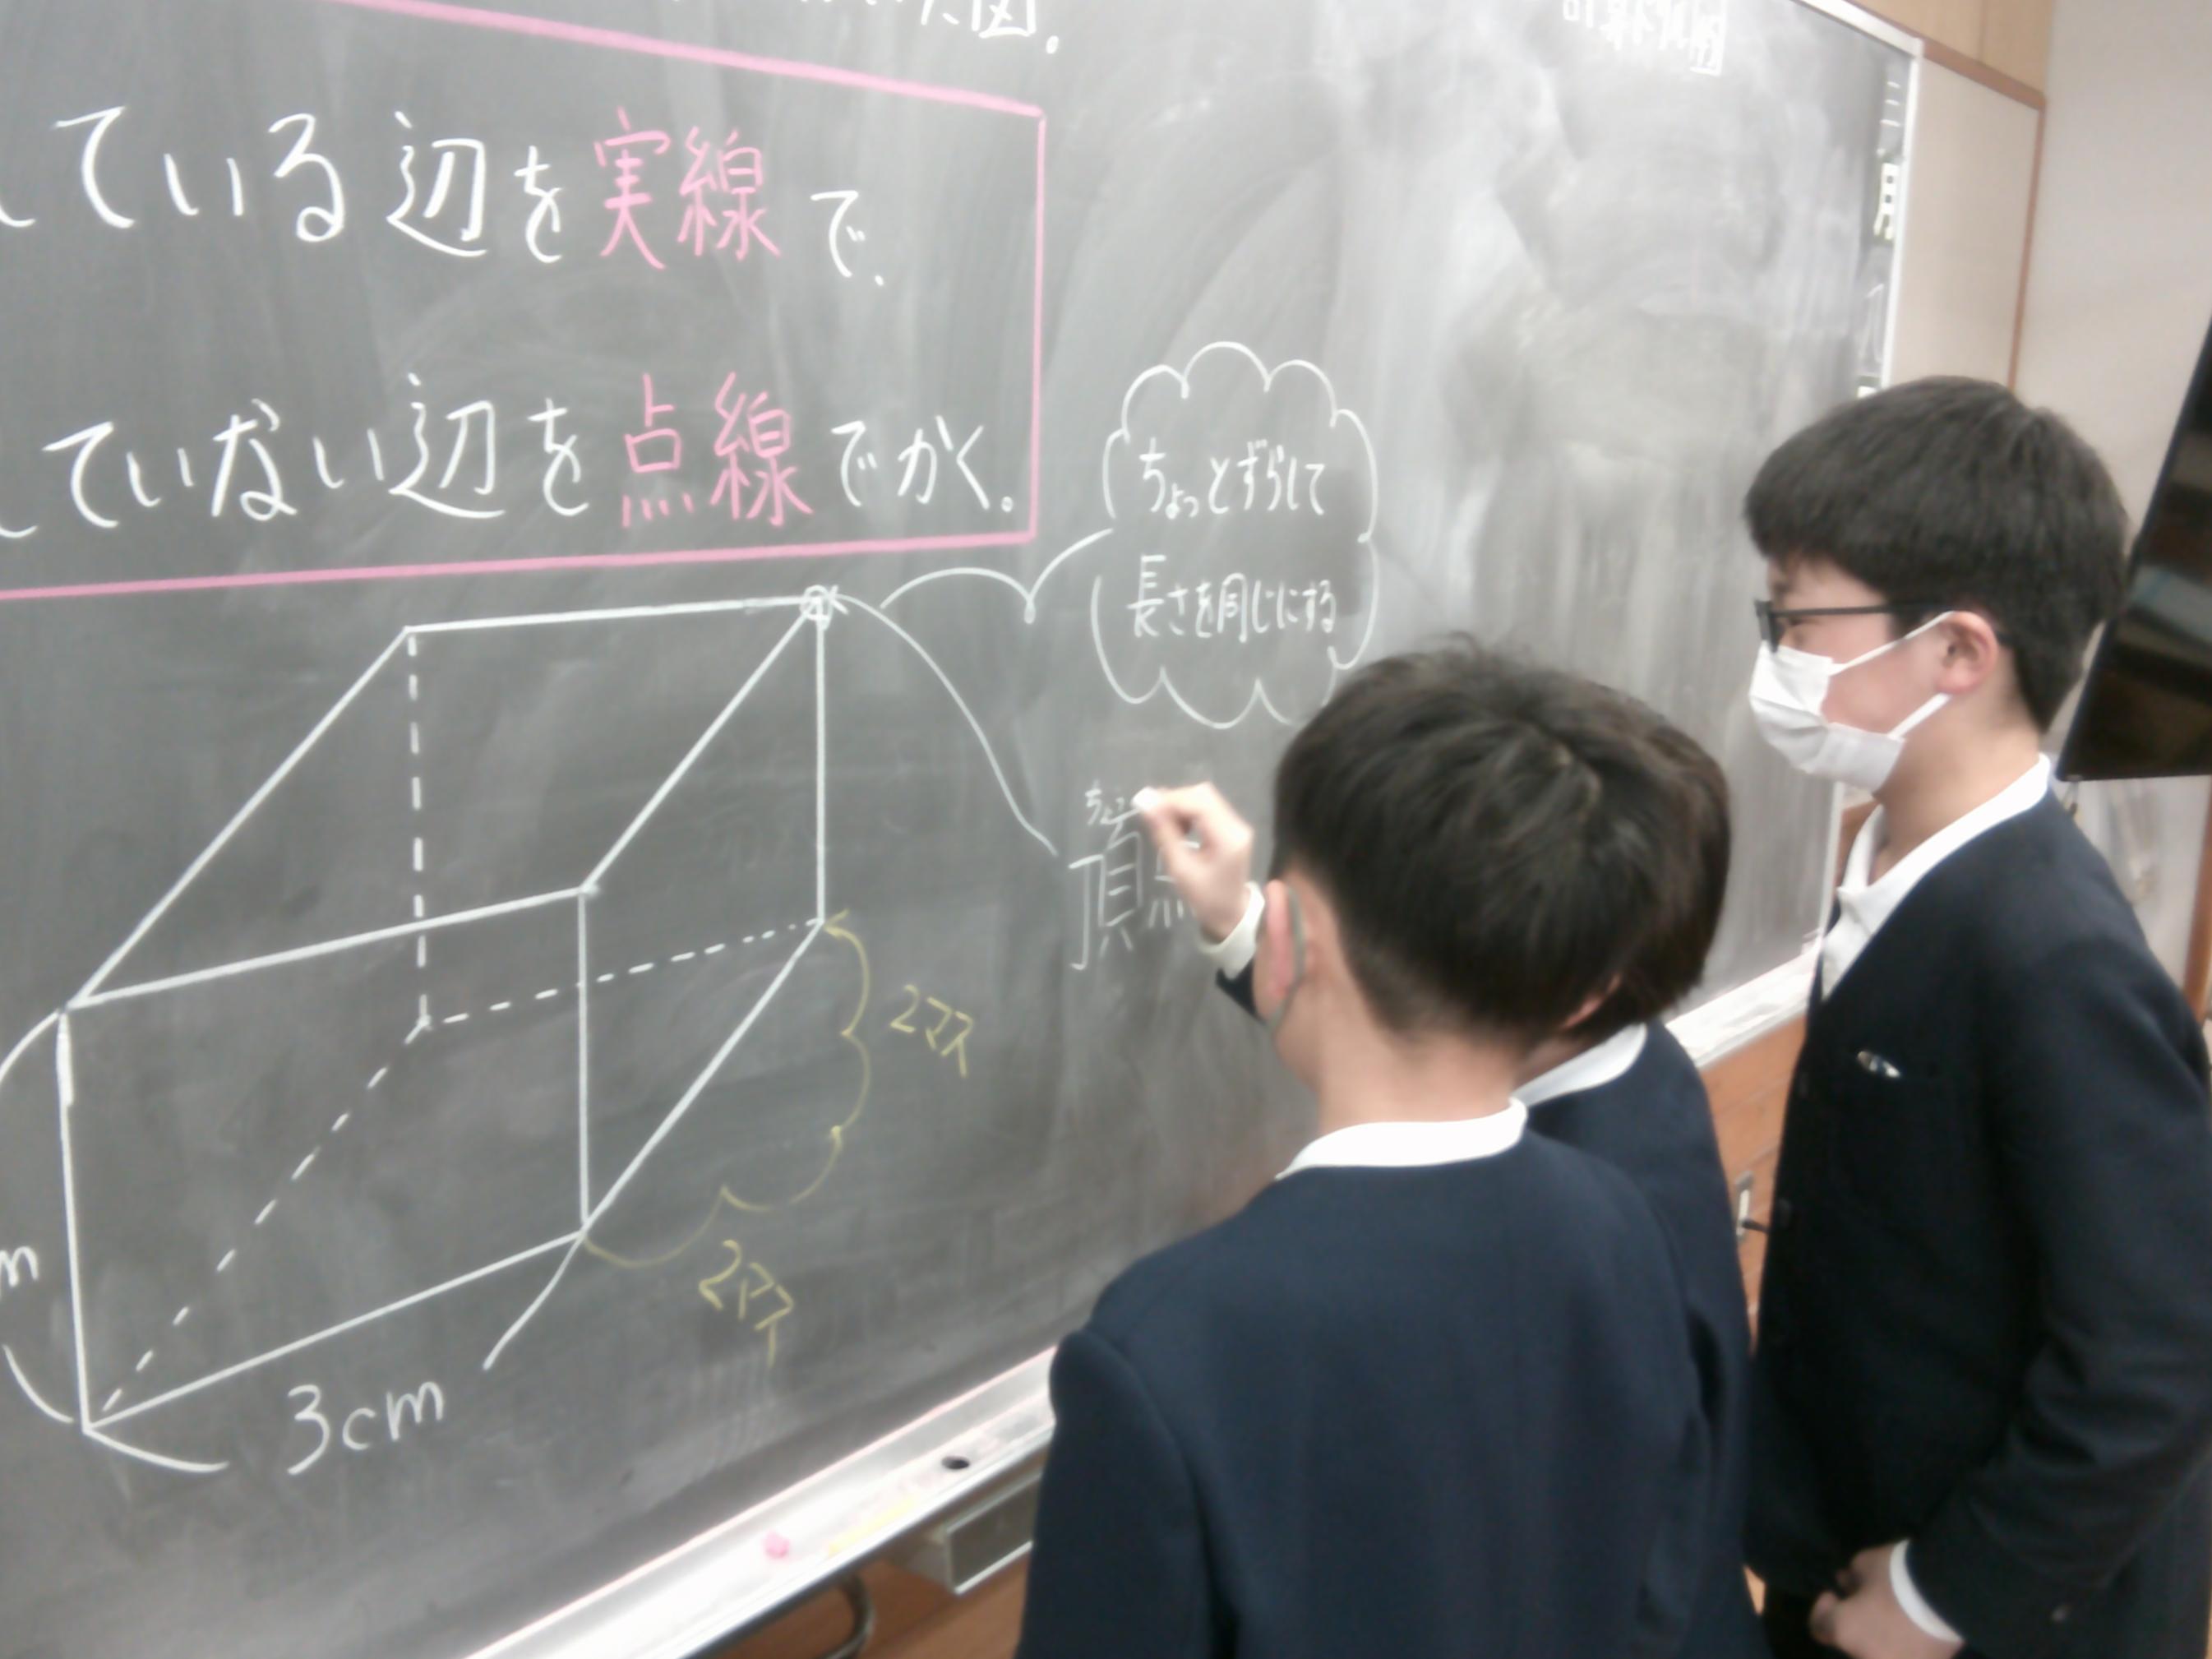 図。
ている辺を実線で、
ていない辺を点線でかく。
ちょっとずらして
長さを同じにする
頂
2マス
2マス
3cm
m
三月